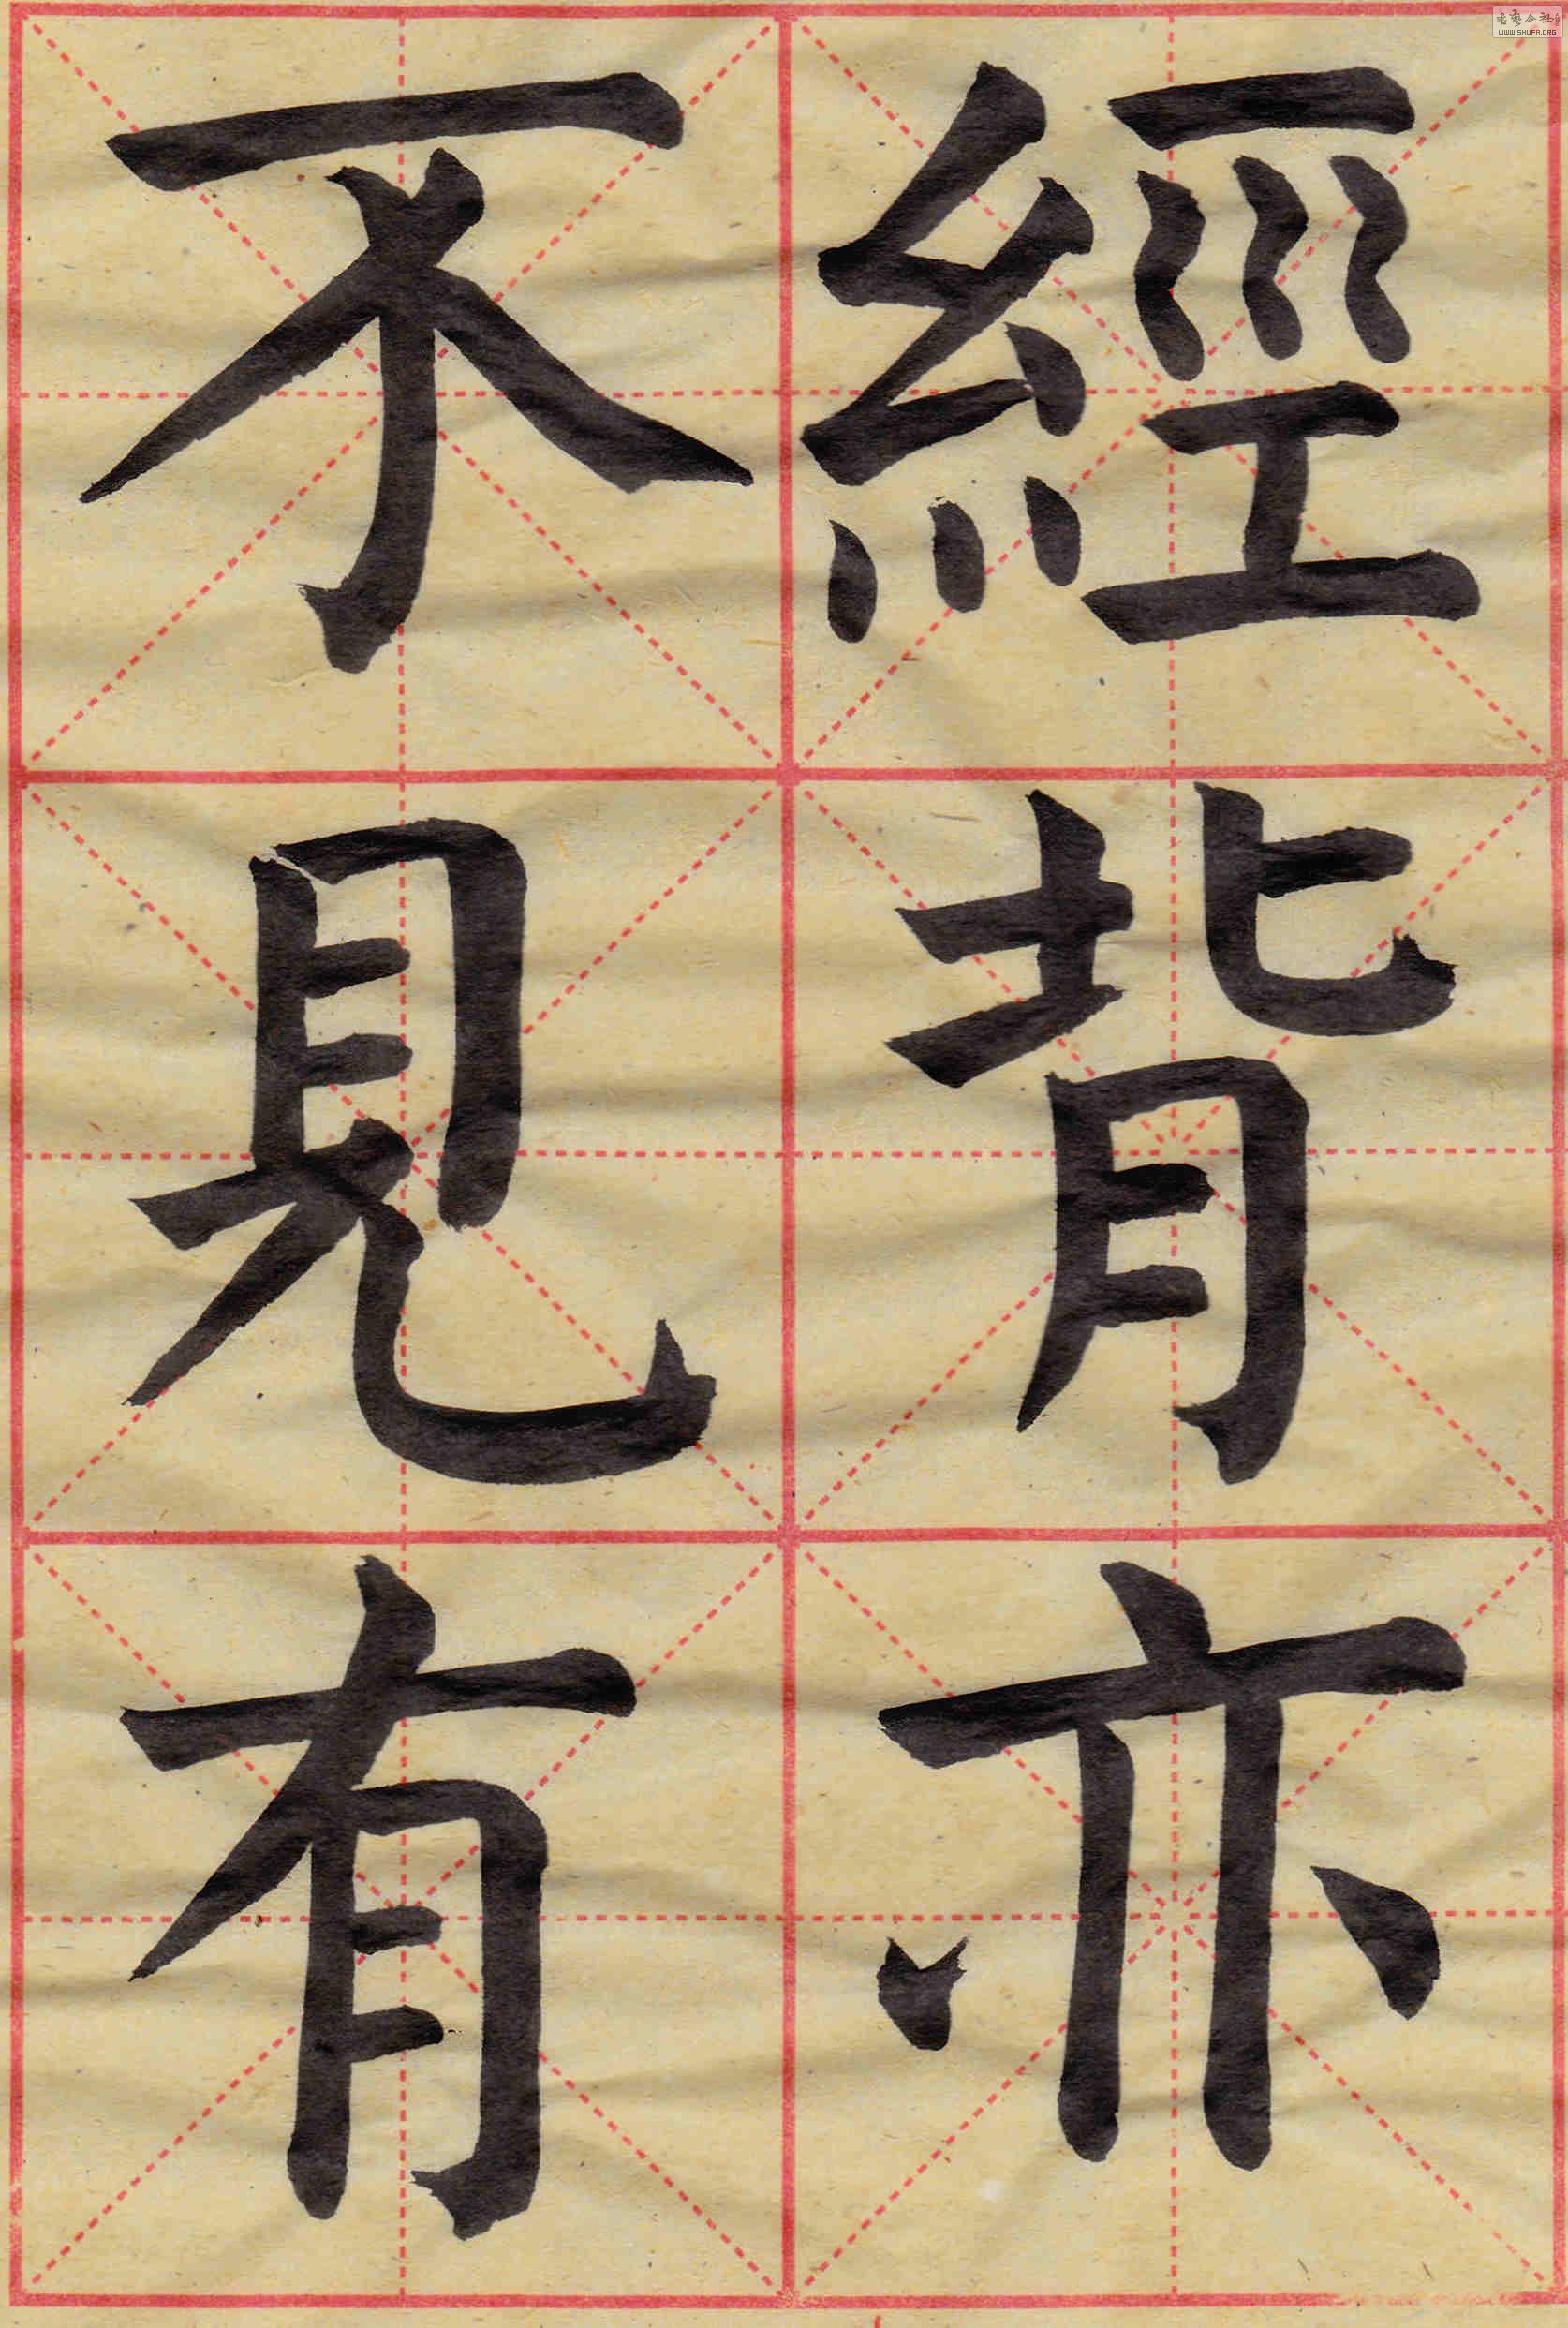 經背亦
不見有
書藝公社
WWW.SHUFA.ORG